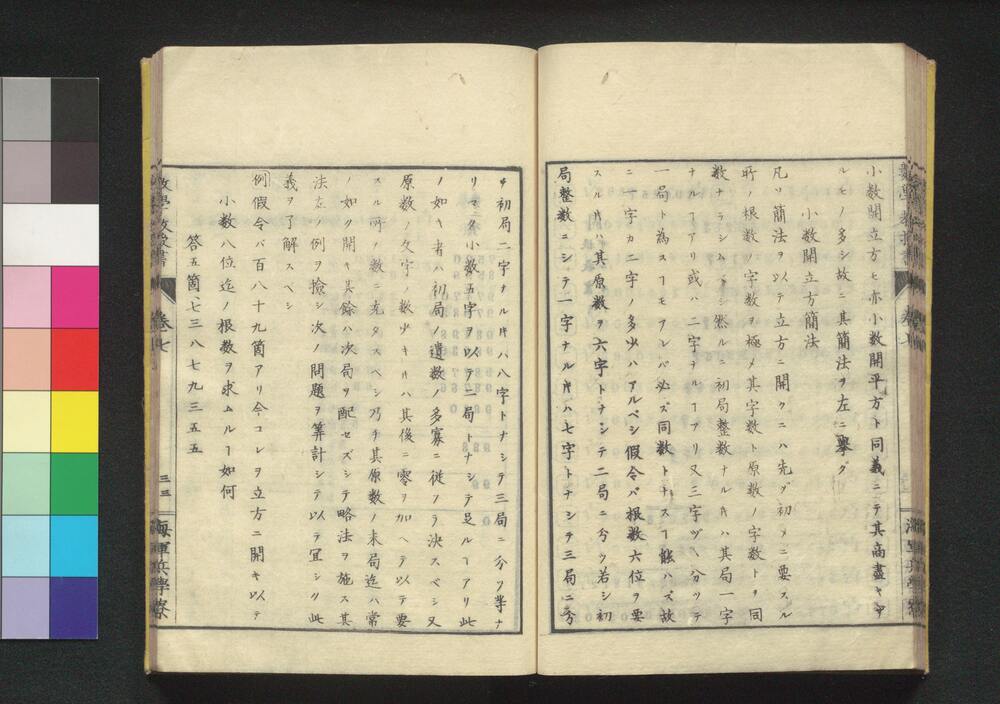 小数開立方モ亦小数開平方ト同義ニテ其商盡キザ
ルモノ多シ故ニ其簡法ヲ左ニ擧グ
小数開立方簡法
凡ソ簡法ヲ以テ立方ニ開クニハ先ダ初メニ要スル
所ノ根数ノ字数ヲ極メ其字数ト原数ノ字数トヲ同
数ナラシムベシ然ルニ初局整数ナルキハ其局一字
ナルヿアリ或ハ二字ナルヿアリ又三字ヅヽ分ツテ
一局ト為スヿモアレバ必ズ同数トナスヿ能ハズ故
ニ一字カ二字ノ多少ハアルベシ假令バ根数六位ヲ要
スルキハ其原数ヲ六字トナシテ二局ニ分ク若シ初
局整数ニシテ一字ナルキハ七字トナシテ三局ニ分
チ初局二字ナルキハ八字トナシテ三局ニ分ツ等ナ
リマタ小数五字ヲ以テ二局トナシテ足ルヿアリ此
ノ如キ者ハ初局ノ遺数ノ多寡ニ従ツラ決スベシ又
原数ノ欠字ノ数少キキハ其後ニ零ヲ加ヘテ以テ要
スル所ノ数ニ充タスベシ乃チ其原数ノ末局迄ハ常
ノ如ク開キ其餘ハ次局ヲ配セズシテ略法ヲ施ス其
法左ノ例ヲ撿シ次ノ問題ヲ算計シテ以テ宜シク此
義ヲ了解スベシ
例 假令バ百八十九箇アリ今コレヲ立方ニ開キ以テ
小数八位迄ノ根数ヲ求ムルヿ如何
答五箇、七三八七九三五五
数學教授書
巻七
三三
海軍兵學寮